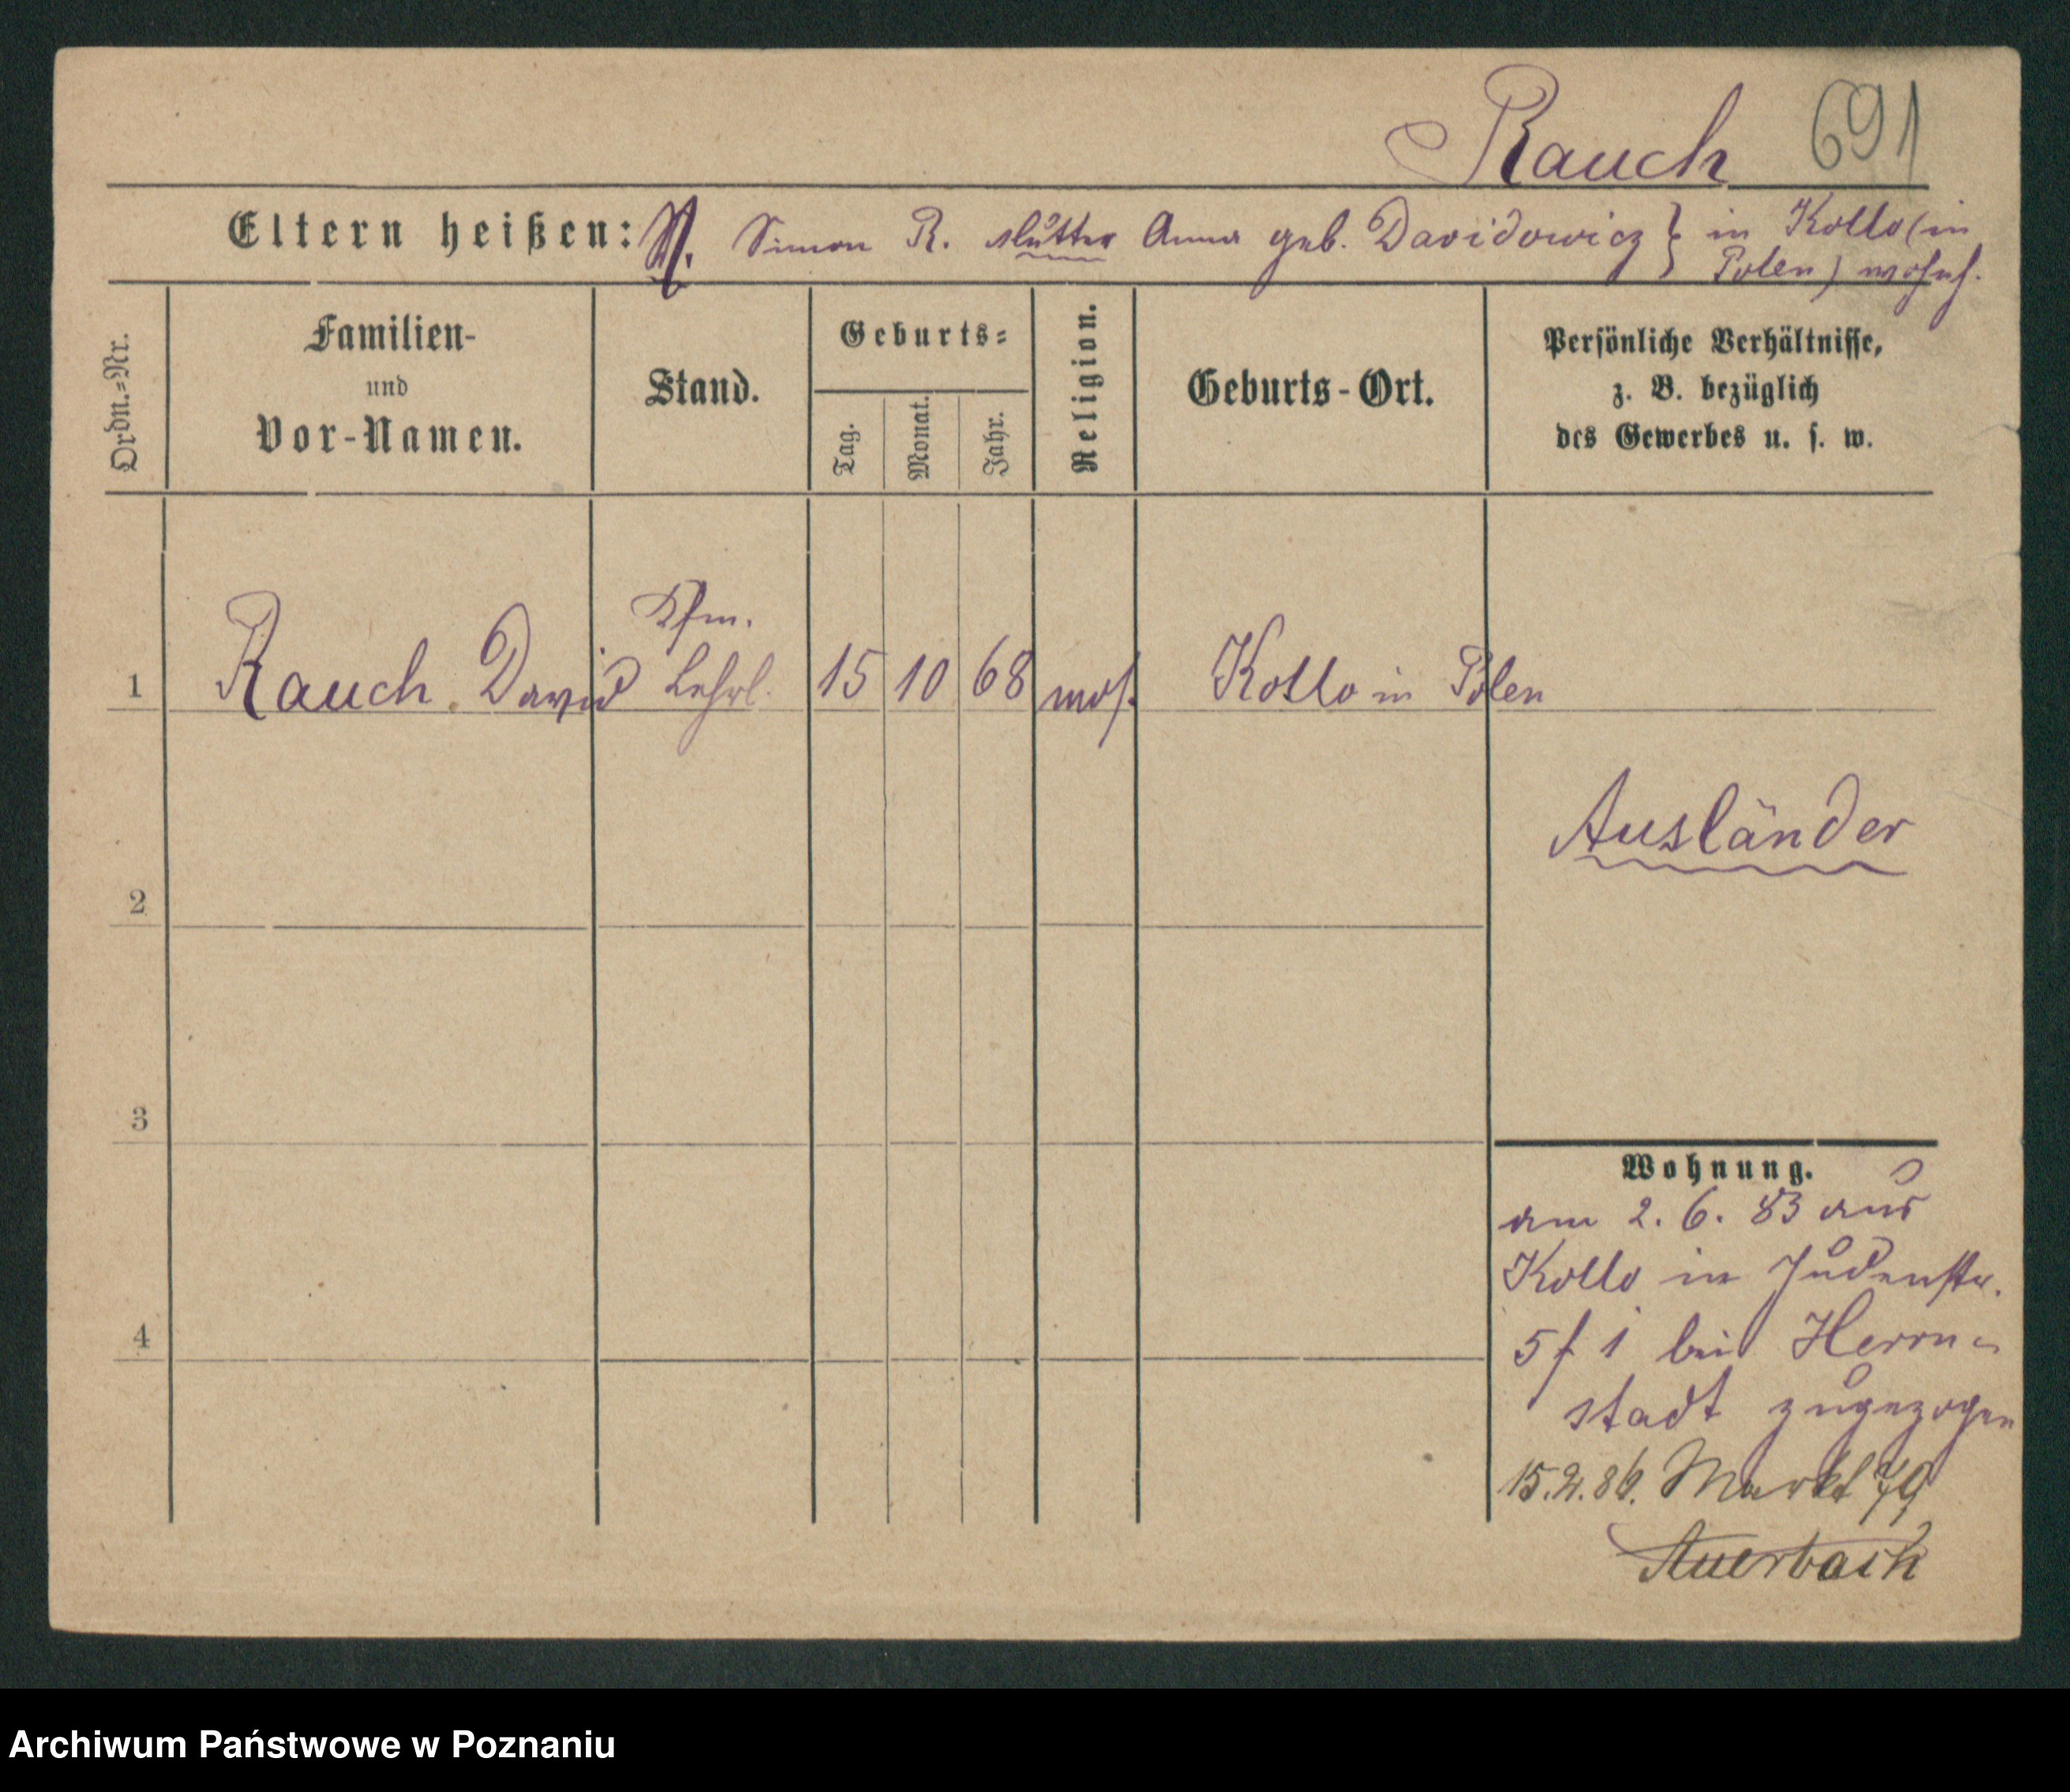 Rauch 691
Eltern heißen: V. Simon R. Mutter Anna geb. Davidowicz } in Kollo (in
Polen) wohnh.
Ordn.=Nr.
Familien-
und
Vor-Namen.
Stand.
Geburts=
Tag.
Monat.
Jahr.
Religion.
Geburts-Ort.
Persönliche Verhältnisse,
z. B. bezüglich
des Gewerbes u. s. w.
Kfm.
1 Rauch David Lehrl. 15 10 68 mos. Kollo in Polen
Ausländer
2
3
4
Wohnung.
am 2. 6. 83 aus
Kollo in Judenstr.
5 f 1 bei Herrn=
stadt zugezogen
15.2.86. Markt 79
Auerbach
Archiwum Państwowe w Poznaniu